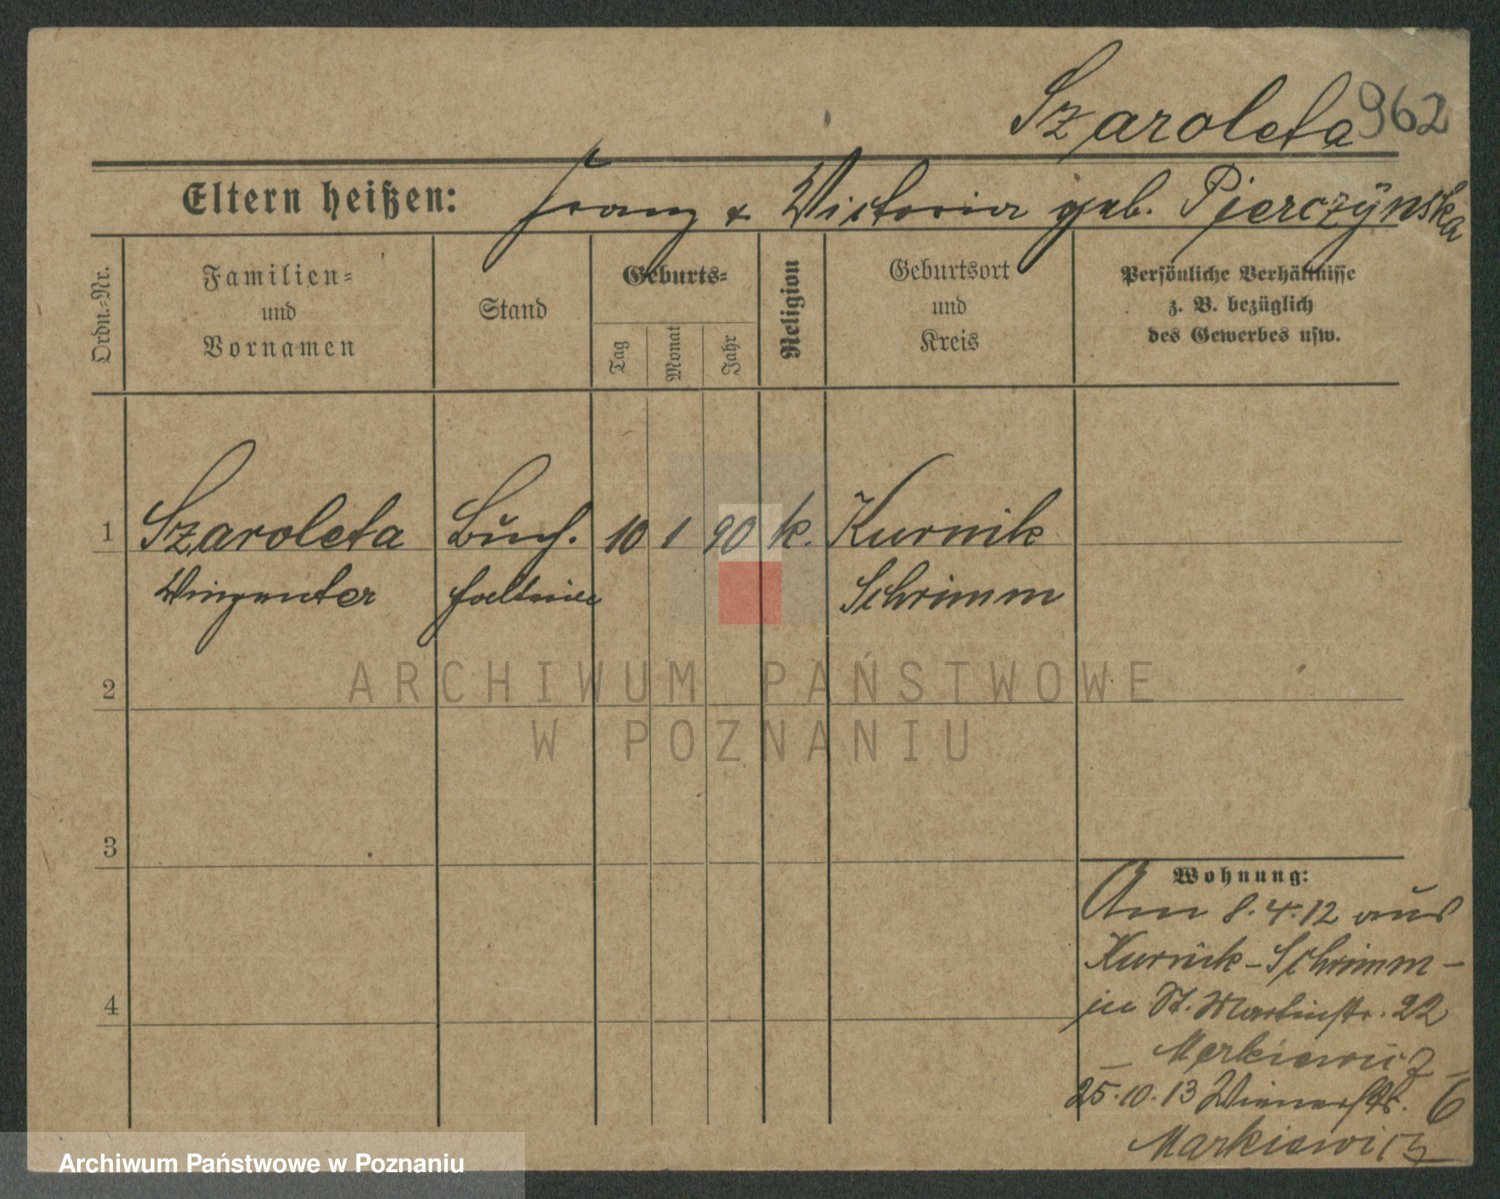 Szaroleta 962
Eltern heißen: Franz & Victoria geb. Pjerczÿnska
Ordn.=Nr.
Familien=
und
Vornamen
Stand
Geburts=
Tag
Monat
Jahr
Religion
Geburtsort
und
Kreis
Persönliche Verhältnisse
z. B. bezüglich
des Gewerbes usw.
1 Szaroleta Buch. 10 1 90 k. Kurnik
halterin Schrimm
2
3
4
Wohnung:
Am 8.4.12 aus
Kurnik - Schrimm -
in St. Martinstr. 22
- Markiewicz -
25.10.13 Wienerstr. 6
Markiewicz
ARCHIWUM PAŃSTWOWE
W POZNANIU
Archiwum Państwowe w Poznaniu